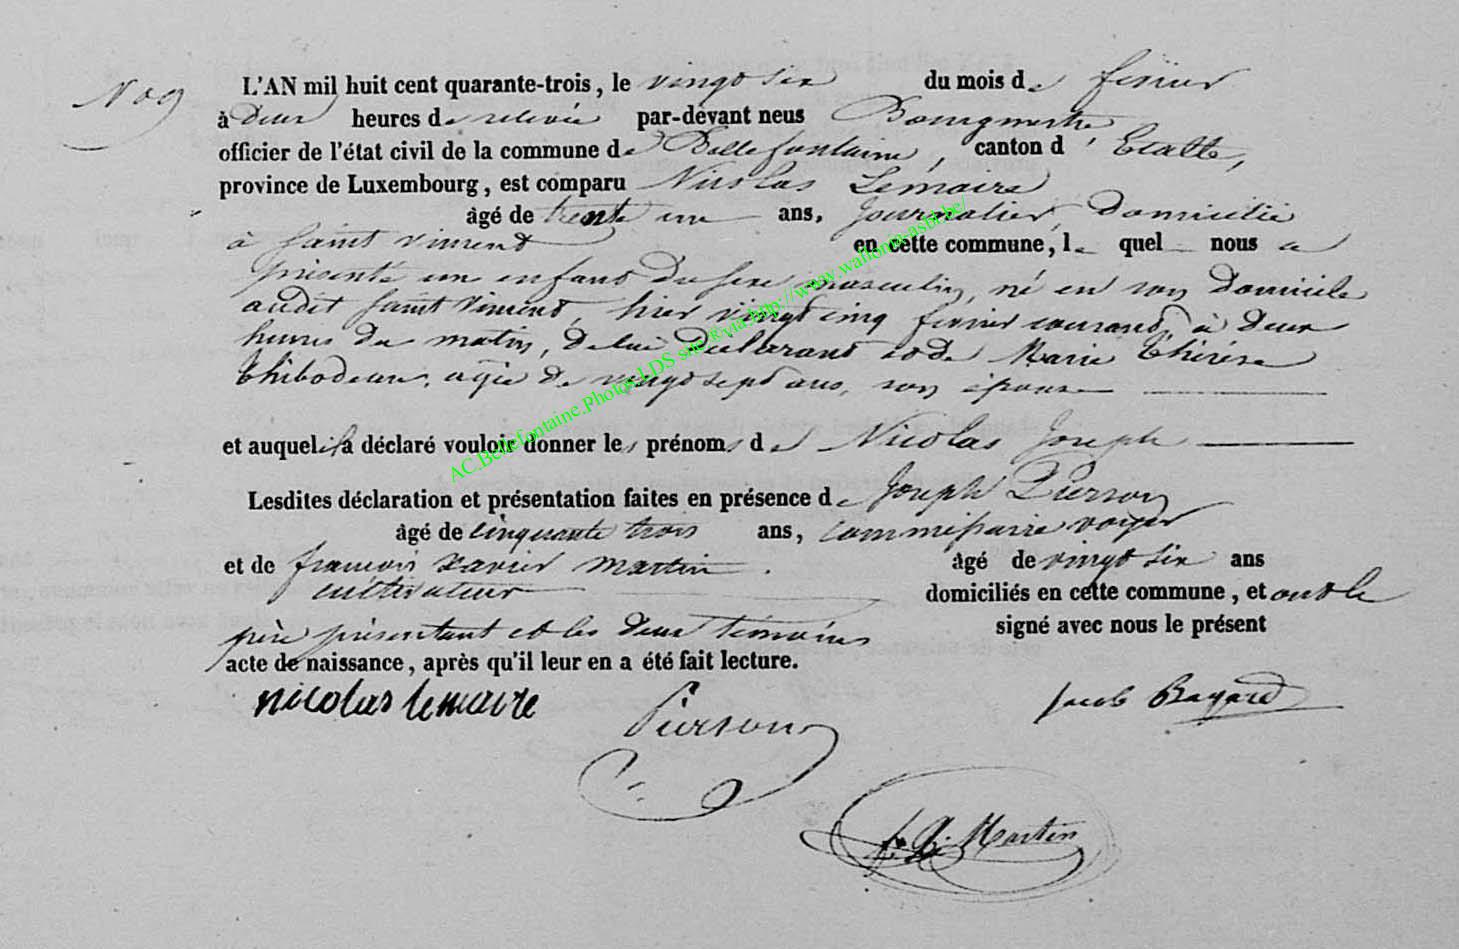 No 9
L'AN mil huit cent quarante-trois, le vingt six du mois de février
à deux heures de relevée par-dèvant nous Bourgmestre,
officier de l'état civil de la commune de Bellefontaine, canton d'Etalle,
province de Luxembourg, est comparu Nicolas Lemaire
âgé de trente un ans, Journalier, domicilié
à Saint Vincent en cette commune, lequel nous a
présenté un enfant du sexe masculin, né en son domicile
audit Saint Vincent, hier vingt cinq février courant, à deux
heures du matin, de lui déclarant et de Marie Thérèse
Thibodeau, agée de vingt sept ans, son épouse
et auquel il a déclaré vouloir donner les prénoms de Nicolas Joseph
Lesdites déclaration et présentation faites en présence de Joseph Pierson
âgé de cinquante trois ans, commissaire voyer
et de françois xavier martin. âgé de vingt six ans
cultivateur domiciliés en cette commune, et ont le
père présentant et les deux témoins signé avec nous le présent
acte de naissance, après qu'il leur en a été fait lecture.
nicolas lemaire
Pierson
Jacob Bayard
fs X. Martin
AC.Bellefontaine.Photos.LDS site®via:http://www.wallonikasbl.be/